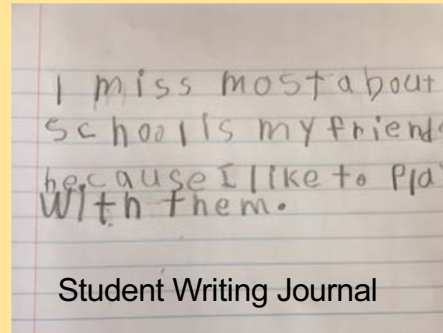 I miss most about
school is my friends
because I like to Play
With them.
Student Writing Journal